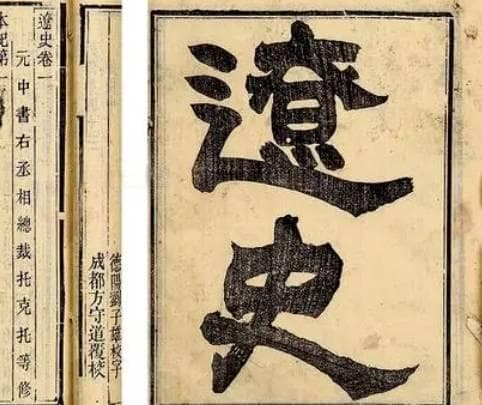 遼史
德陽劉子雄校字
成都方守道覆校
遼史卷一
元中書右丞相總裁托克托等修
本紀第一